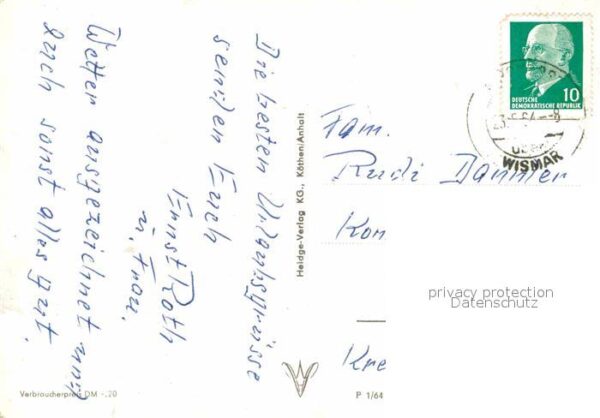 Die besten Urlaubsgrüsse
senden Euch
Ernst Roth
u. Frau.
Wetter ausgezeichnet und
auch sonst alles gut.
Verbraucherpreis DM -,20
Heldge-Verlag KG., Köthen/Anhalt
P 1/64
10
DEUTSCHE
DEMOKRATISCHE REPUBLIK
WISMAR
Fam.
Rudi
Kre
privacy protection
Datenschutz